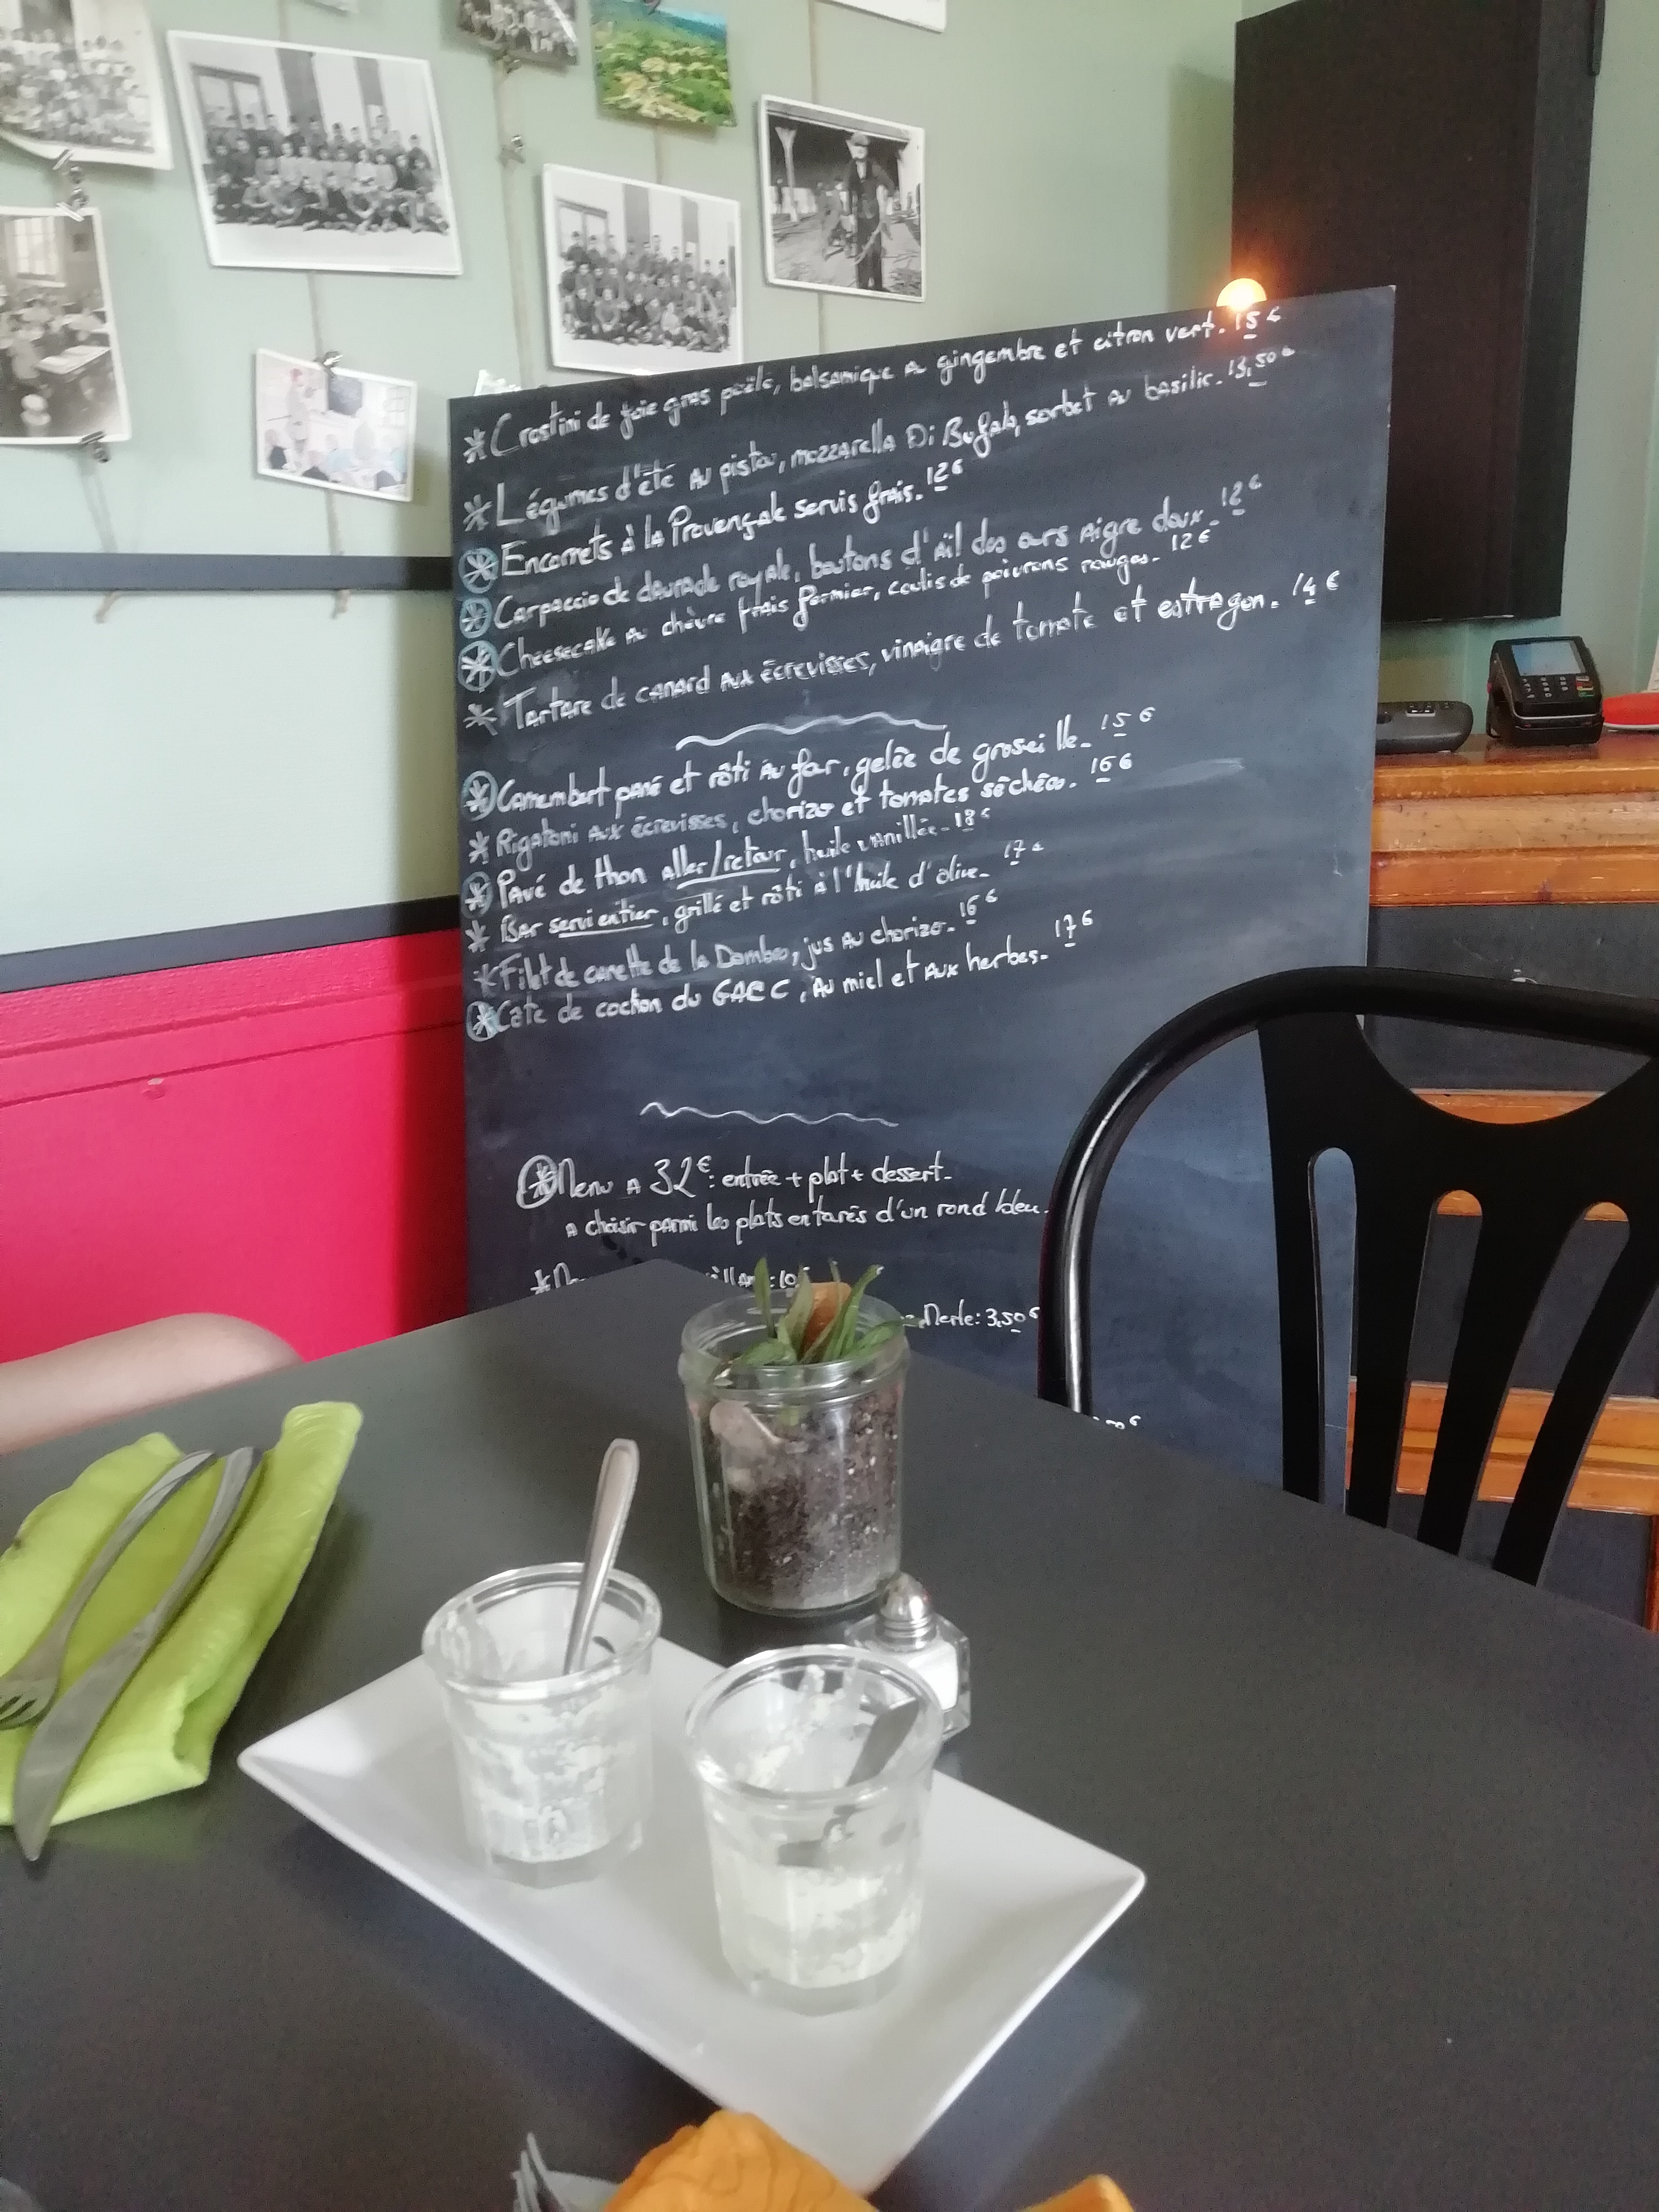 * Crostini de foie gras poêlé, balsamique au gingembre et citron vert. 15€
* Légumes d'été au pistou, mozzarella Di Bufala, sorbet au basilic. 13,50€
* Encornets à la Provençale servis frais. 12€
* Carpaccio de daurade royale, boutons d'ail des ours aigre doux. 12€
* Cheesecake au chèvre frais fermier, coulis de poivrons rouges. 12€
* Tartare de canard aux écrevisses, vinaigre de tomate et estragon. 14€
* Camembert pané et rôti au four, gelée de groseille. 15€
* Rigatoni aux écrevisses, chorizo et tomates séchées. 16€
* Pavé de thon aller/retour, huile vanillée. 18€
* Bar servi entier, grillé et rôti à l'huile d'olive. 17€
* Filet de canette de la Dombes, jus au chorizo. 16€
* Côte de cochon du GAEC, au miel et aux herbes. 17€
* Menu A 32€: entrée + plat + dessert.
A choisir parmi les plats entourés d'un rond bleu.
Merle: 3,50€